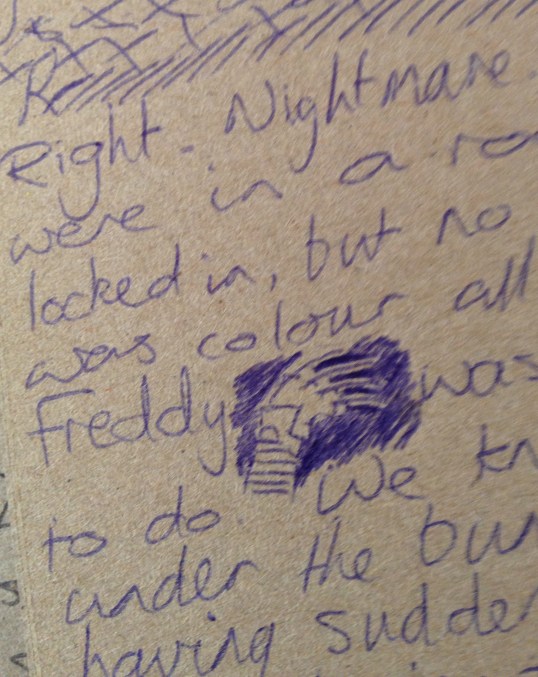 Right. Nightmare.
were in a
locked in, but no
was colour all
Freddy was
to do. We
under the
having